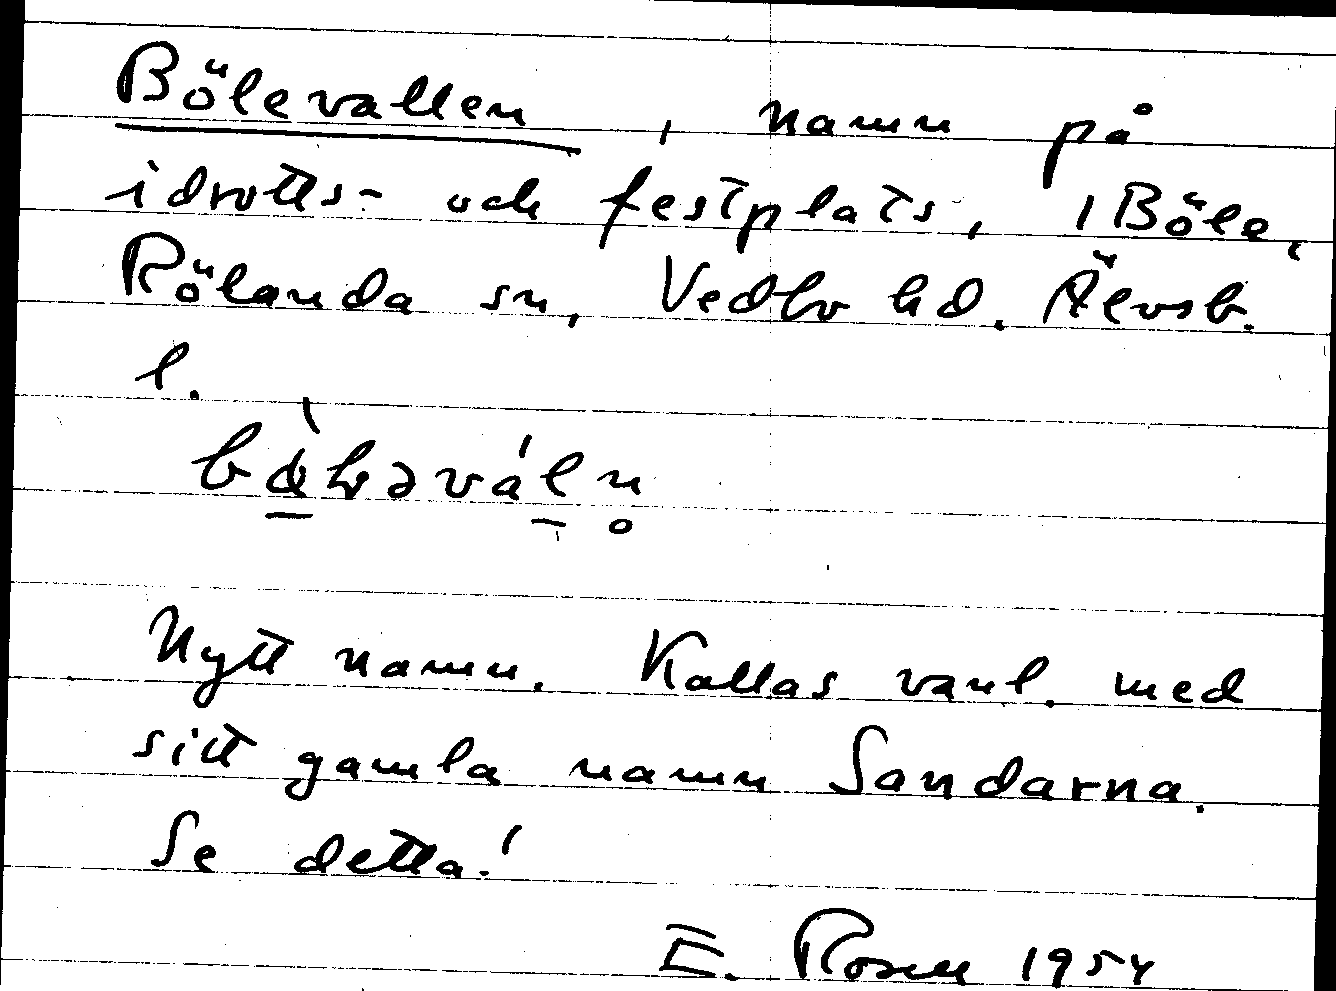 Bölevallen, namn på
idrotts- och festplats, i Böle,
Rölanda sn, Vedbo hd. Älvsb.
l.
Nytt namn. Kallas vanl. med
sitt gamla namn Sandarna.
Se detta!
E. Rosell 1954